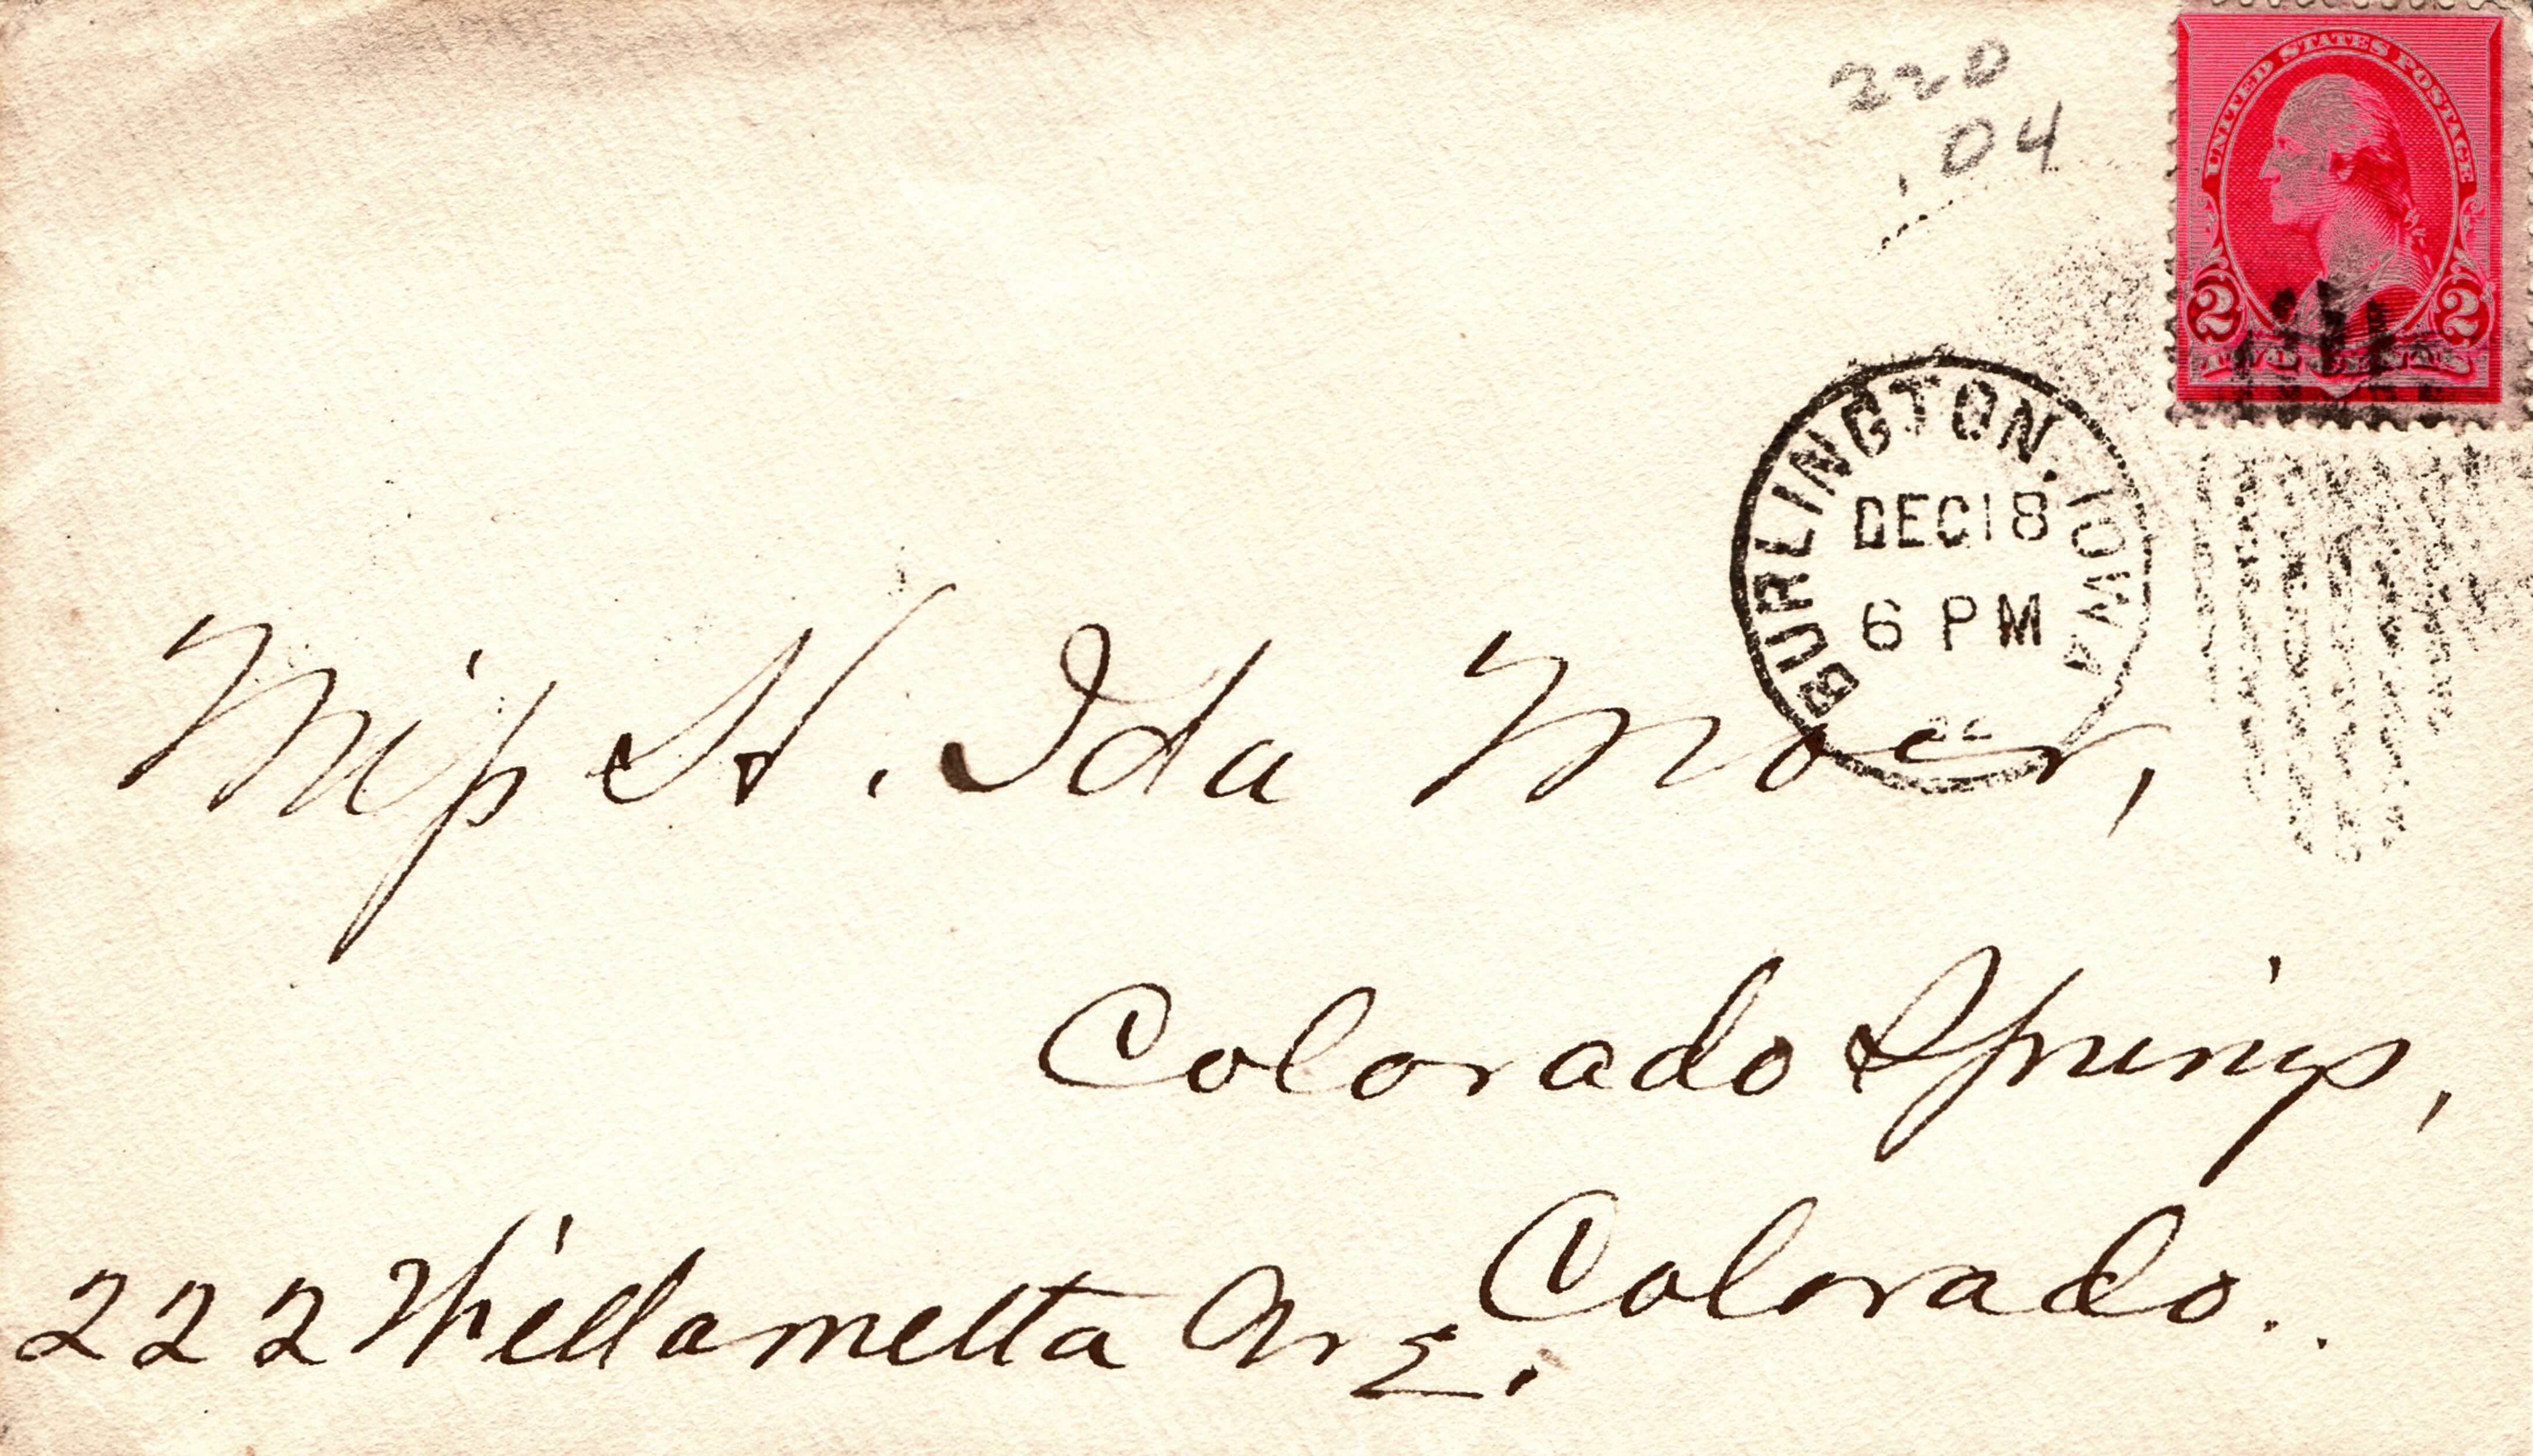 220
.04
UNITED STATES POSTAGE
2 2
BURLINGTON. IOWA
DEC 18
6 PM
Miss H. Ida Moer,
Colorado Springs,
Colorado..
222 Willametta Ave.